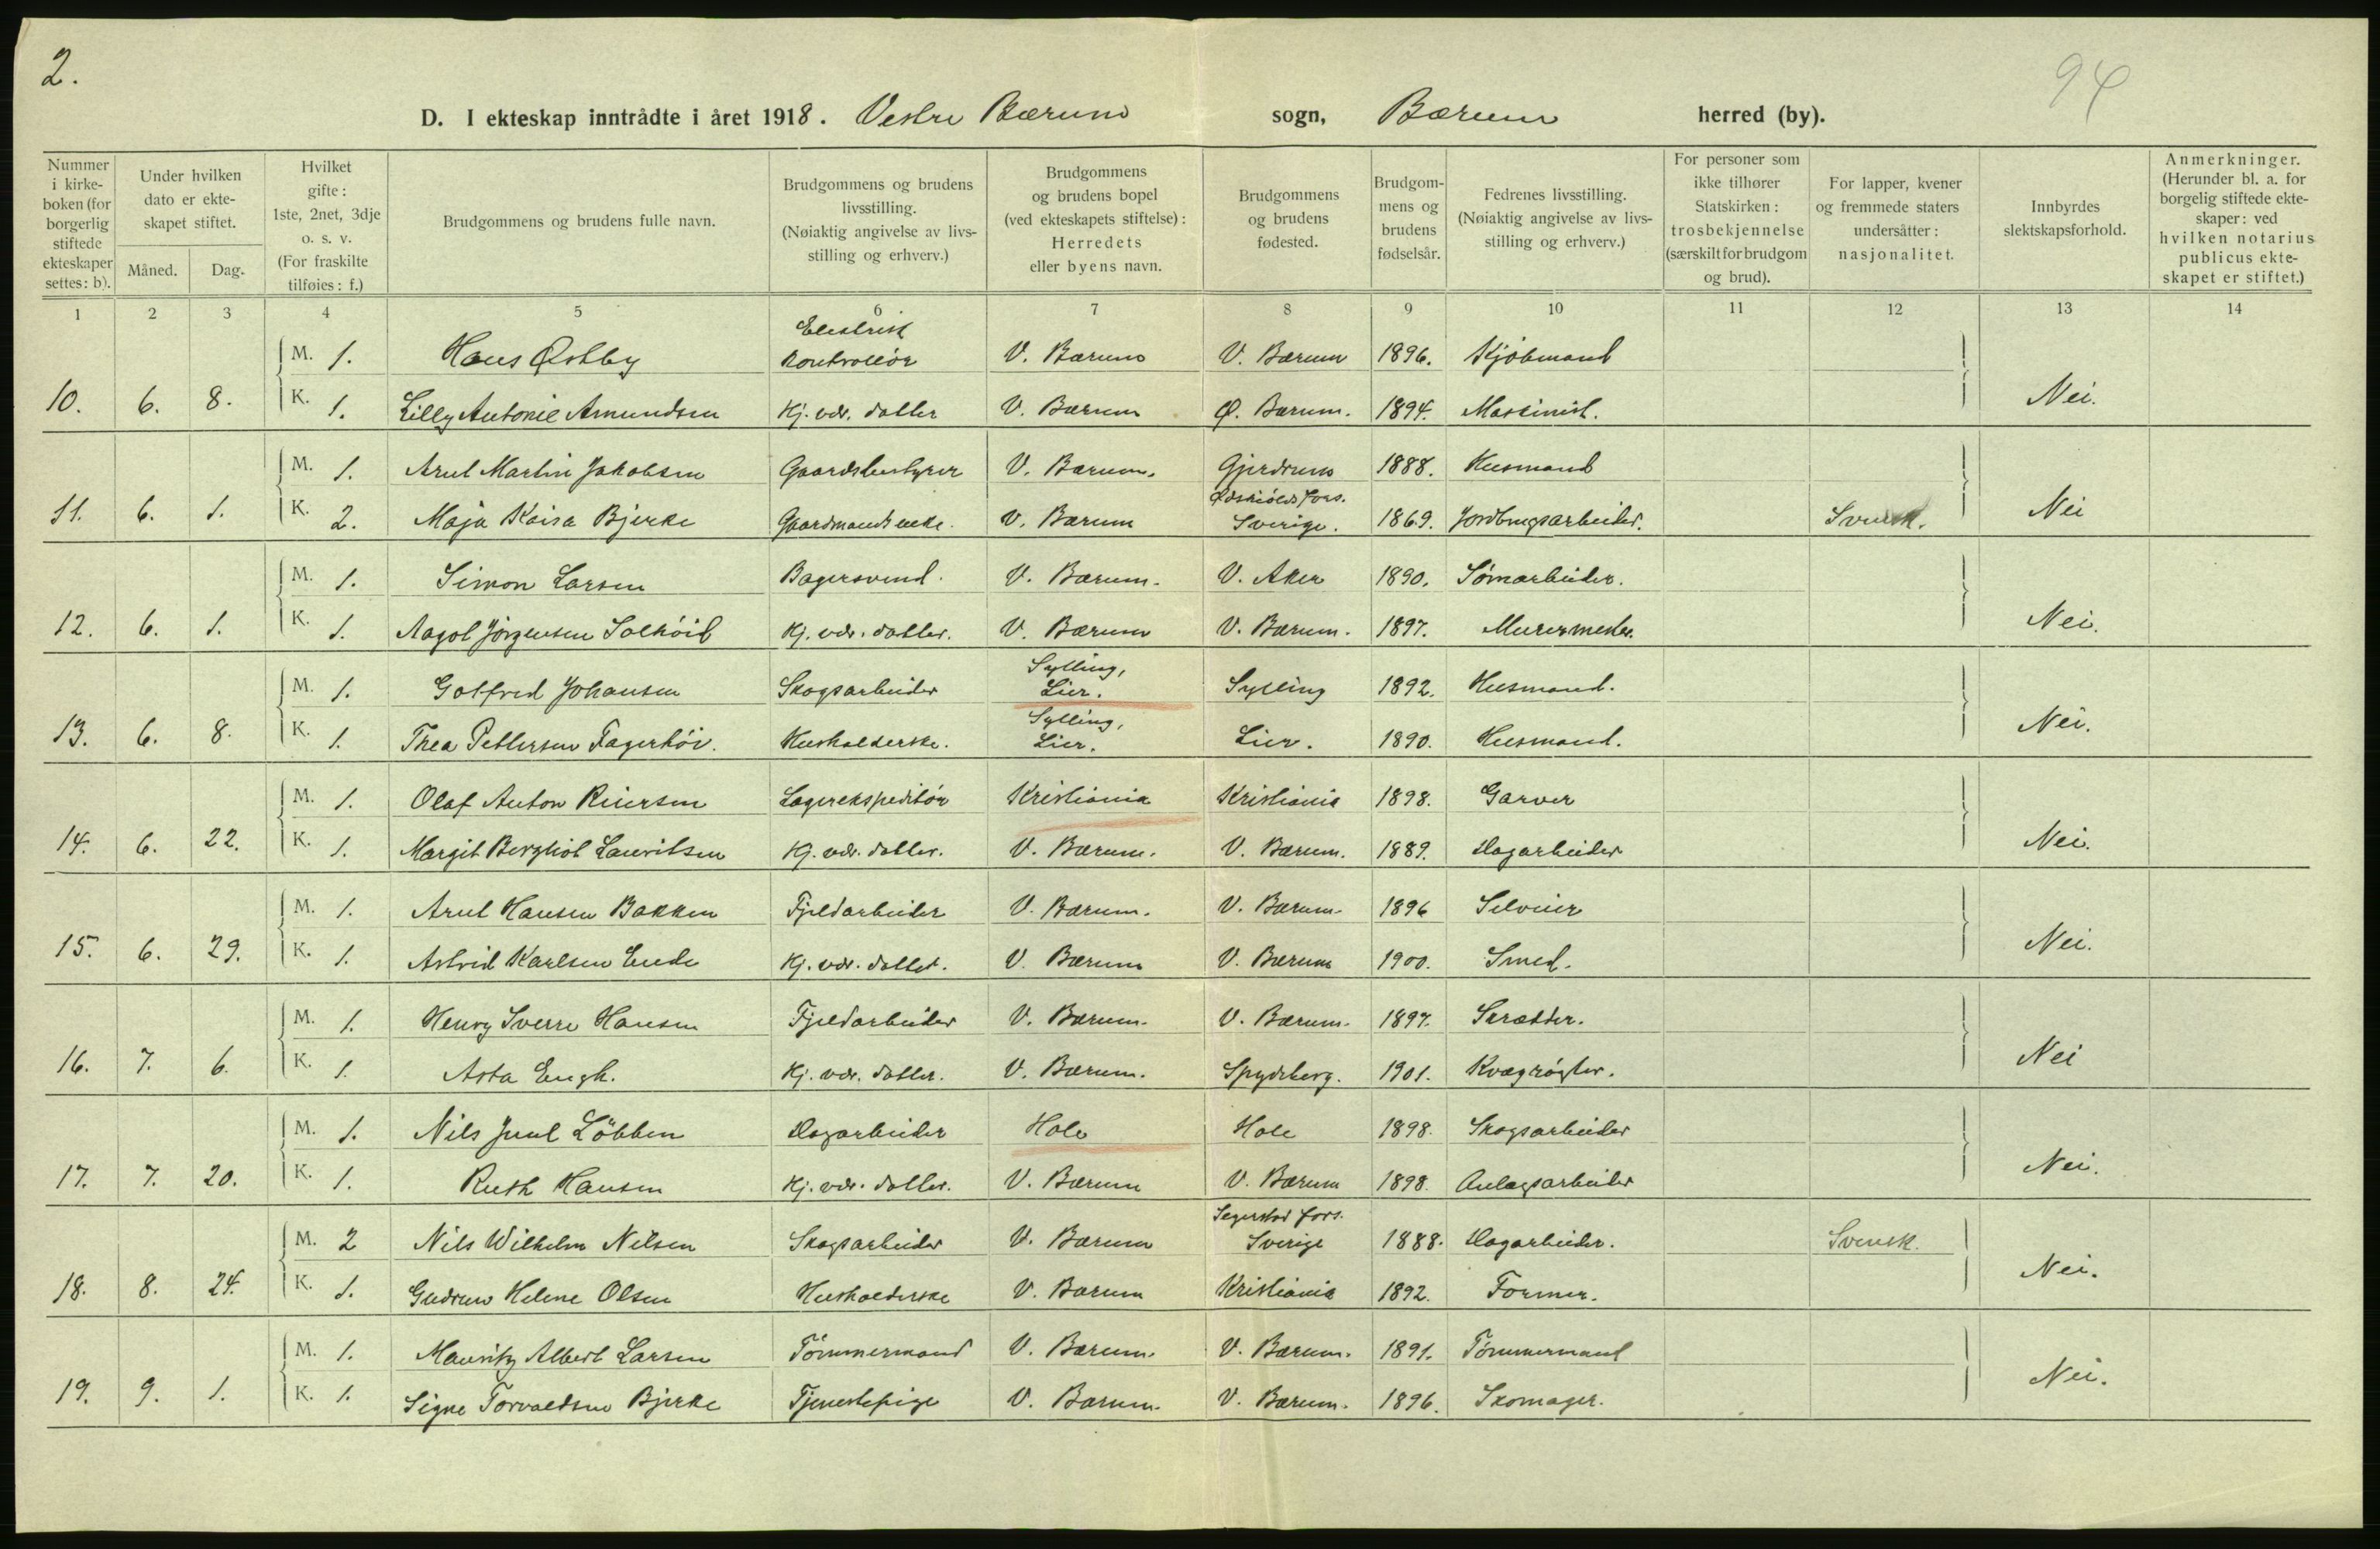 2.
94
D. I ekteskap inntrådte i året 1918. Vestre Bærum sogn, Bærum herred (by).
Nummer i kirkeboken (for borgerlig stiftede ekteskaper settes: b).
Under hvilken dato er ekteskapet stiftet.
Måned. Dag.
Hvilket gifte: 1ste, 2net, 3dje o. s. v. (For fraskilte tilføies: f.)
Brudgommens og brudens fulle navn.
Brudgommens og brudens livsstilling. (Nøiaktig angivelse av livsstilling og erhverv.)
Brudgommens og brudens bopel (ved ekteskapets stiftelse): Herredets eller byens navn.
Brudgommens og brudens fødested.
Brudgommens og brudens fødselsår.
Fedrenes livsstilling. (Nøiaktig angivelse av livsstilling og erhverv.)
For personer som ikke tilhører Statskirken: trosbekjennelse (særskilt for brudgom og brud).
For lapper, kvener og fremmede staters undersåtter: nasjonalitet.
Innbyrdes slektskapsforhold.
Anmerkninger. (Herunder bl. a. for borgelig stiftede ekteskaper: ved hvilken notarius publicus ekteskapet er stiftet.)
1 2 3 4 5 6 7 8 9 10 11 12 13 14
M. 1. Hans Østby Elektrisk kontrollør V. Bærum V. Bærum 1896. Kjøbmand
10. 6. 8. K. 1. Lilly Antonie Amundsen Kj. vær. datter V. Bærum Ø. Bærum. 1894. Maskinist. Nei.
M. 1. Arnt Martin Jakobsen Gaardsbestyrer V. Bærum. Gjerdrum 1888. Husmand
11. 6. 1. K. 2. Maja Kaisa Bjerke Gaardmands enke. V. Bærum Sverige. 1869. Jordbrugsarbeider. Svensk. Nei
M. 1. Simon Larsen Bagersvend. V. Bærum. V. Aker 1890. Sömarbeider.
12. 6. 1. K. 1. Aagot Jörgensen Solhöid Kj. vær. datter. V. Bærum V. Bærum. 1897. Murermester. Nei.
M. 1. Gotfred Johansen Skogsarbeider Sylling, Lier. Sylling 1892. Husmand.
13. 6. 8. K. 1. Thea Pettersen Fagerhöi. Husholderske. Sylling, Lier. Lier. 1890. Husmand. Nei.
M. 1. Olaf Anton Reiersen Lagerekspeditör Kristiania Kristiania 1898. Garver
14. 6. 22. K. 1. Margit Bergliot Lauritsen Kj. vær. datter. V. Bærum. V. Bærum. 1889. Dagarbeider Nei.
M. 1. Arnt Hansen Bakken Fjeldarbeider V. Bærum. V. Bærum. 1896 Selveier
15. 6. 29. K. 1. Astrid Karlsen Ende Kj. vær. datter. V. Bærum V. Bærum 1900. Smed. Nei.
M. 1. Henry Sverre Hansen Fjeldarbeider V. Bærum. V. Bærum. 1897. Skrædder.
16. 7. 6. K. 1. Asta Engh. Kj. vær. datter. V. Bærum. Spydeberg. 1901. Kvægrögter. Nei
M. 1. Nils Juul Löbben Dagarbeider Hole Hole 1898. Skogsarbeider
17. 7. 20. K. 1. Ruth Hansen Kj. vær. datter. V. Bærum V. Bærum 1898. Anlægsarbeider Nei.
M. 2 Nils Wilhelm Nilsen Skogsarbeider V. Bærum Segerstad fors. Sverige 1888. Dagarbeider. Svensk.
18. 8. 24. K. 1. Gudrun Helene Olsen Husholderske V. Bærum Kristiania 1892. Former. Nei.
M. 1. Mauritz Albert Larsen Tömmermand V. Bærum. V. Bærum. 1891. Tömmermand
19. 9. 1. K. 1. Signe Torvaldsen Bjerke Tjenestepige V. Bærum. V. Bærum. 1896. Skomager. Nei.